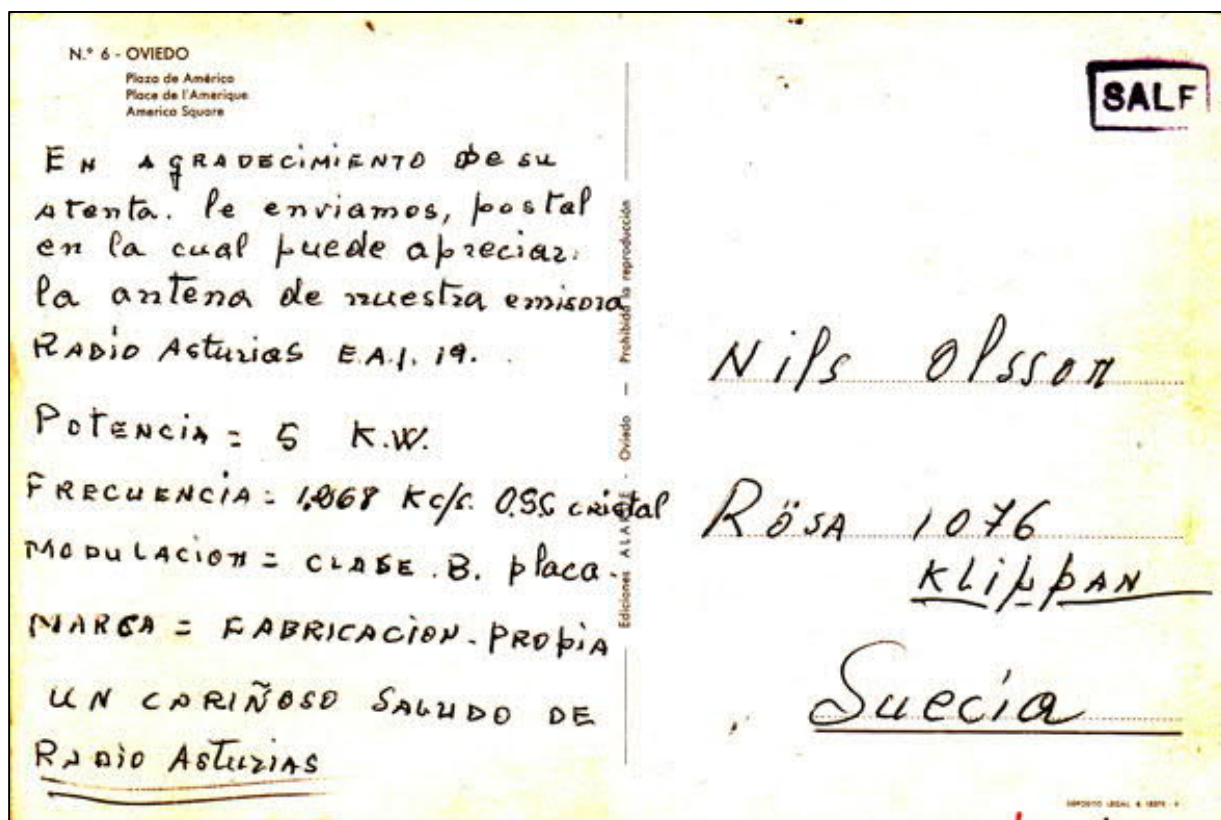 N.° 6 - OVIEDO
Plaza de América
Place de l'Amerique
America Square
EN AGRADECIMIENTO DE SU
atenta. le enviamos, postal
en la cual puede apreciar.
la antena de nuestra emisora
RADIO ASTURIAS E.A.J. 19.
POTENCIA = 5 K.W.
FRECUENCIA = Kc/s. cristal
MODULACION = CLASE . B. placa.
MARCA = FABRICACION - PROPIA
UN CARIÑOSO SALUDO DE
RADIO ASTURIAS
Ediciones - Oviedo — Prohibida la reproducción
SALF
Nils Olsson
RÖSA 1076
KLIPPAN
Suecia
DEPOSITO LEGAL